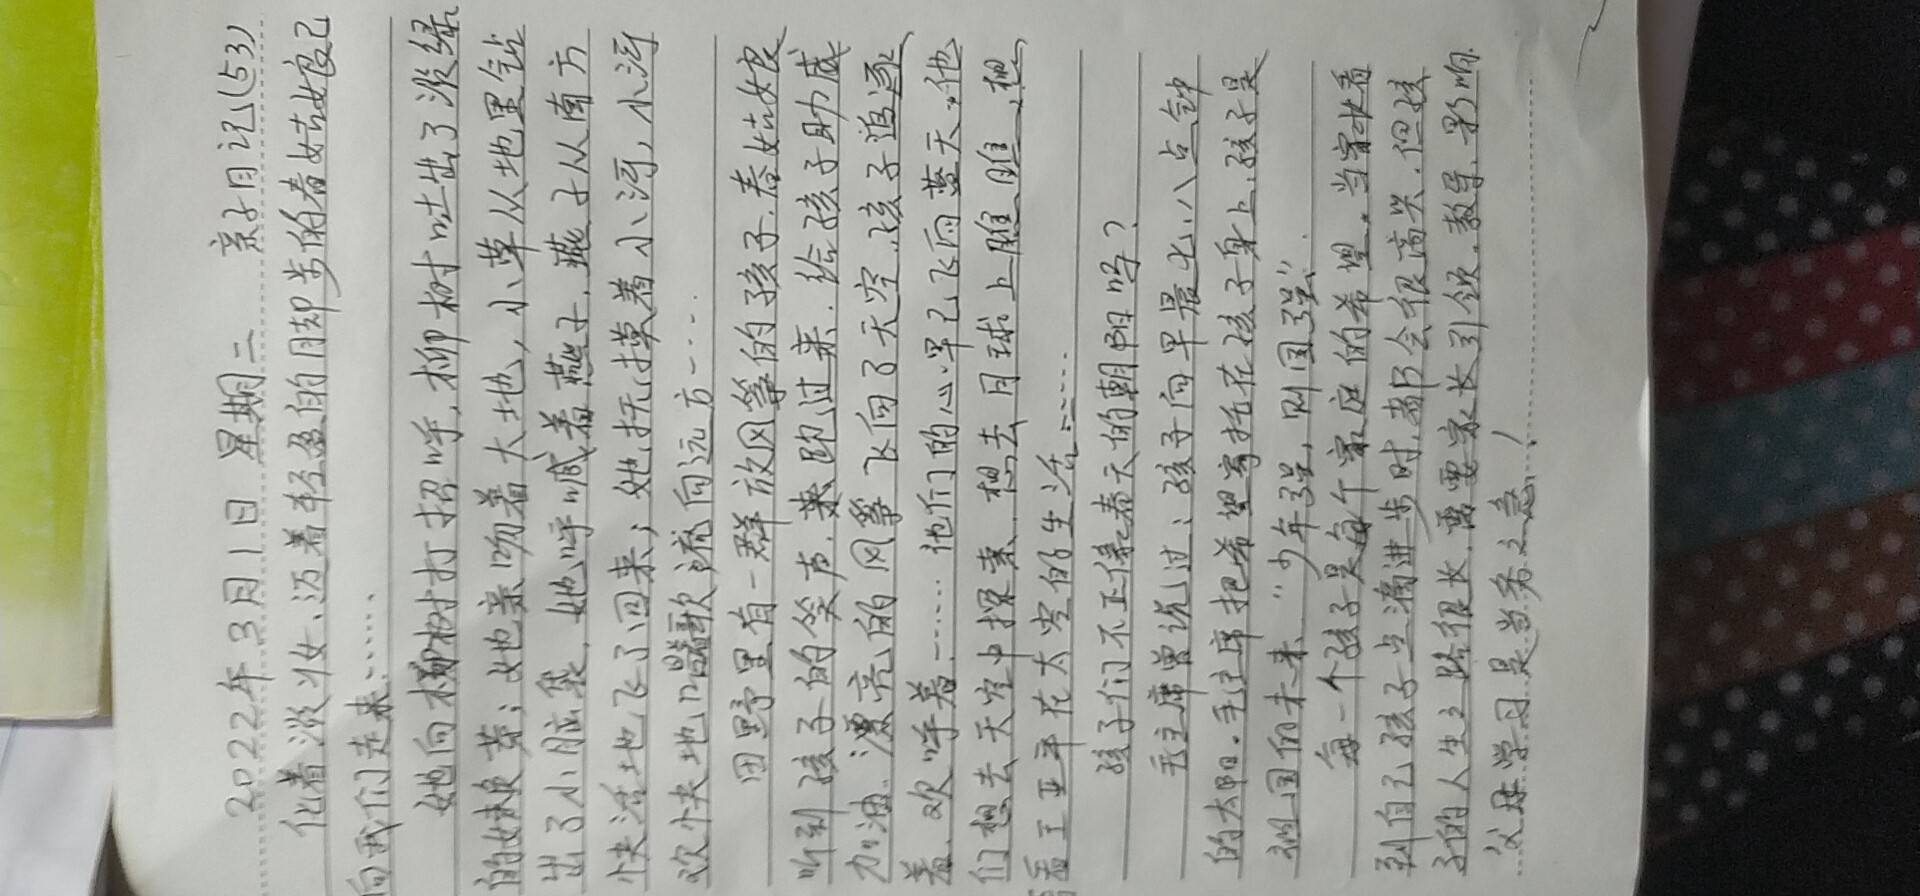 2022年3月1日 星期二 亲子日记(53)
化着淡妆、迈着轻盈的脚步的春姑娘已
向我们走来……
她向柳树打招呼,柳树吐出了淡绿
的嫩黄芽;她亲吻着大地,小草从地里钻
出了小脑袋,她呼喊着燕子,燕子从南方
快活地飞了回来;她抚摸着小河,小河
欢快地唱歌流向远方……
田野里有一群放风筝的孩子,春姑娘
听到孩子的笑声,跑过来,给孩子助威
加油。漂亮的风筝飞向了天空,孩子追逐
着、欢呼着……他们的心早已飞向蓝天。他
们想去天空中探索、想去月球上瞧瞧、想
看王亚平在太空的生活……
孩子们不正像春天的朝阳吗?
毛主席曾说过:孩子向早晨七、八点钟
的太阳。毛主席把希望寄托在孩子身上,孩子是
祖国的未来。"少年强,则国强"。
每一个孩子是每个家庭的希望。当家长看
到自己孩子点滴进步时,都会很高兴。但孩
子的人生之路很长,需要家长引领、教导、影响。
父母学习是当务之急!